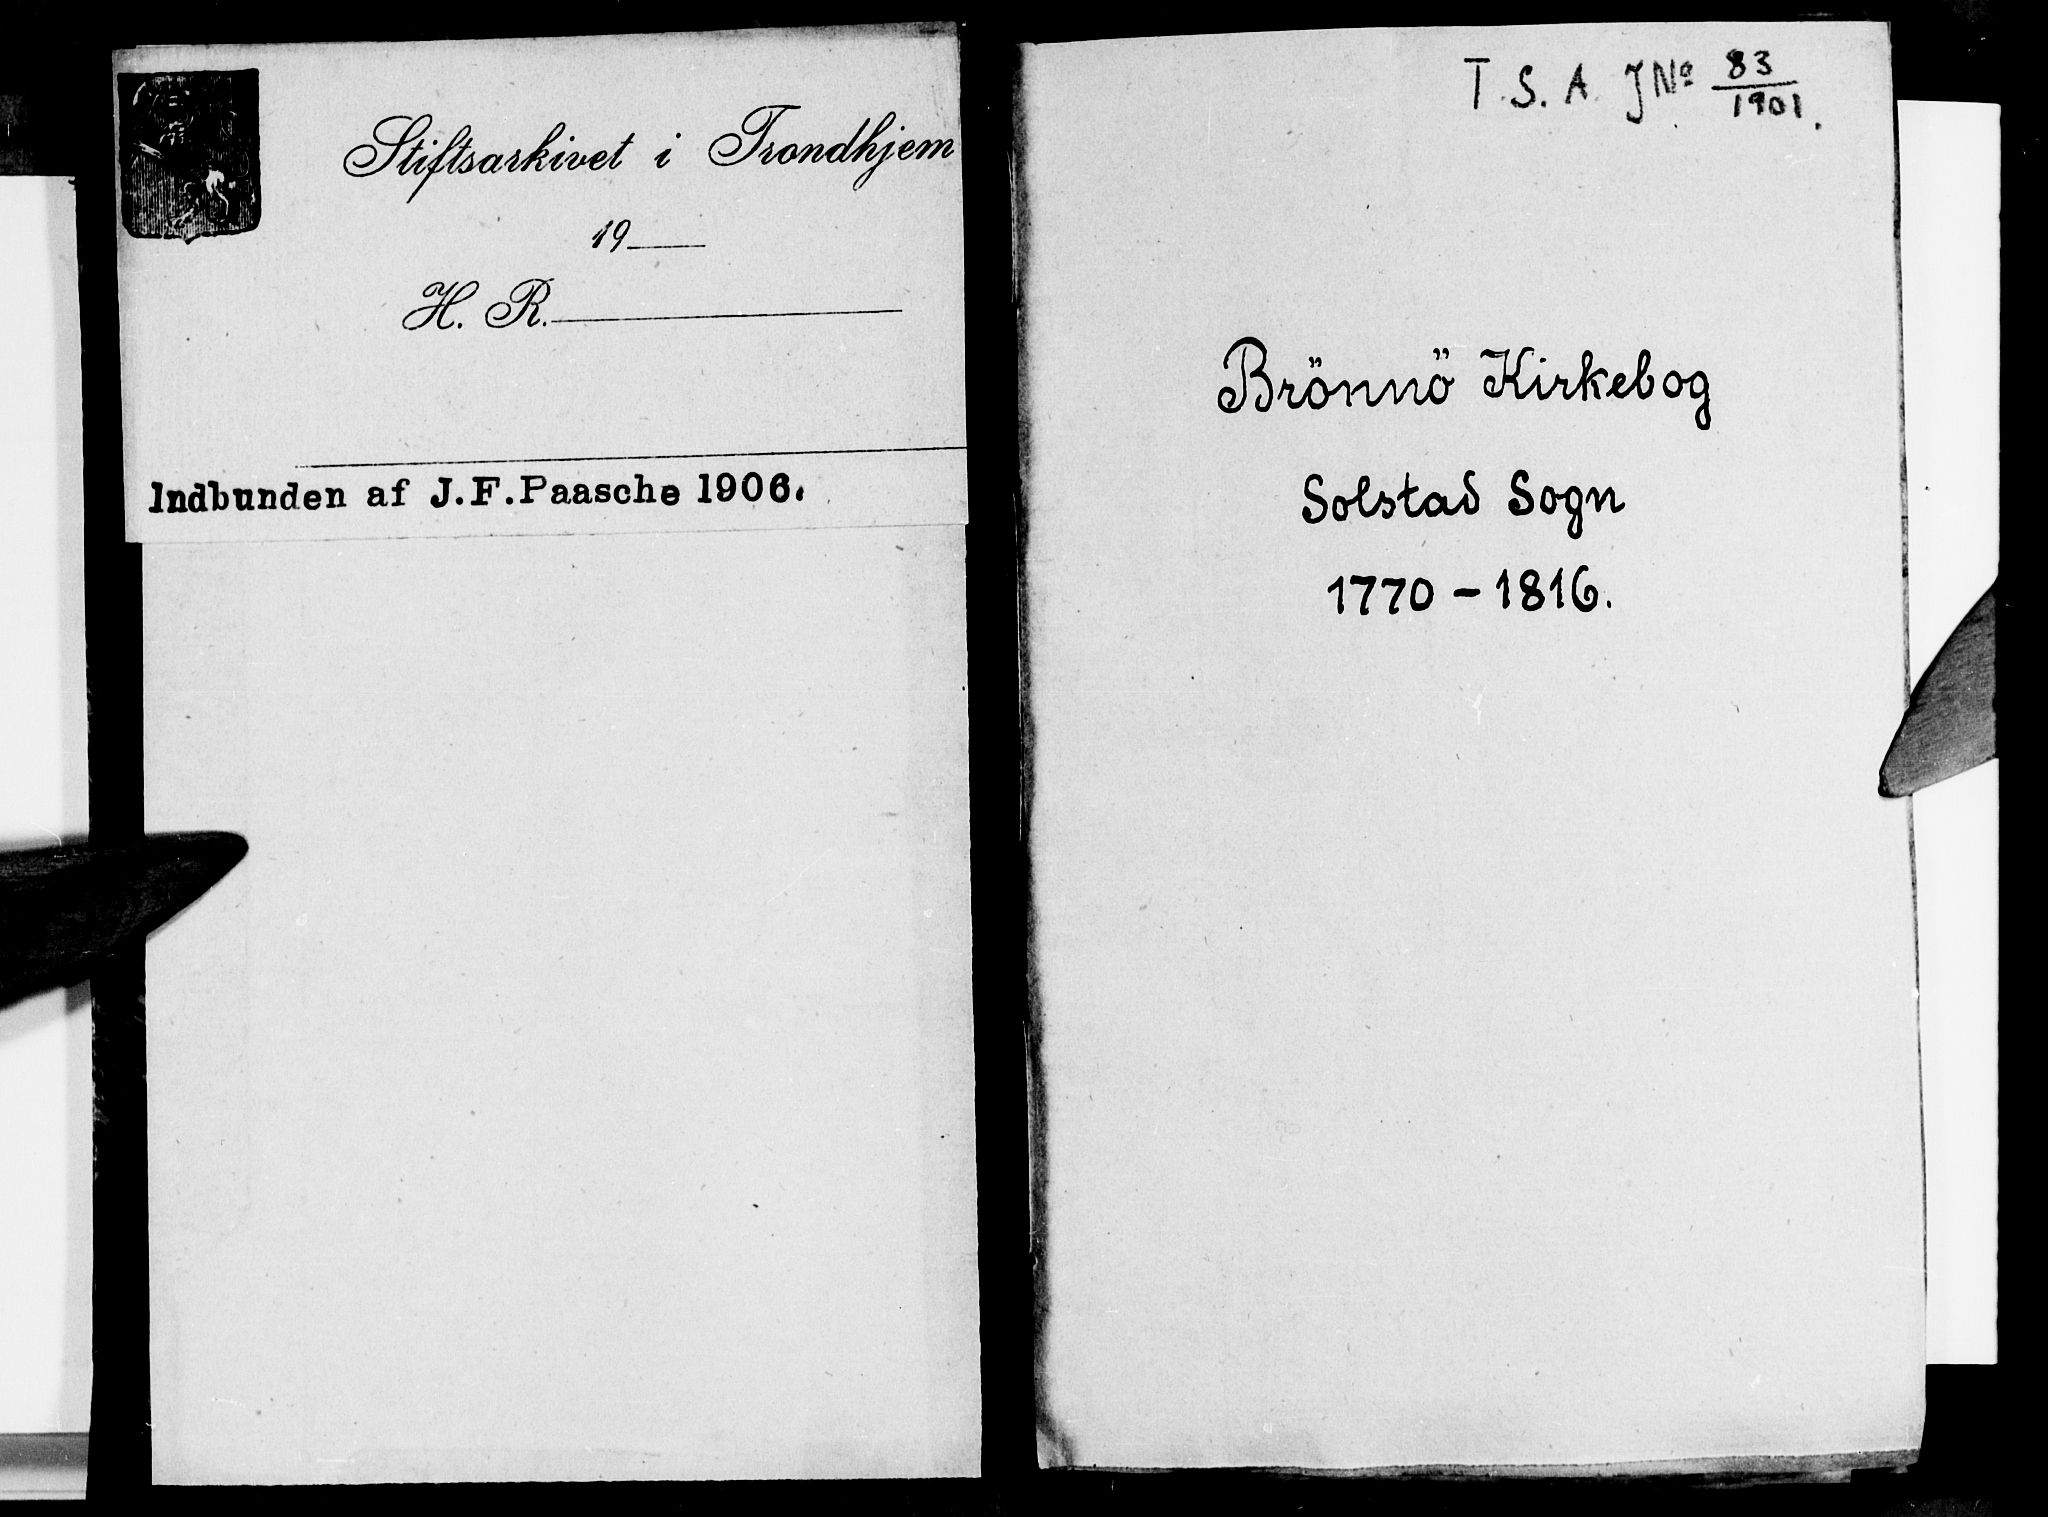 Stiftsarkivet i Trondhjem
19
H. R.
Indbunden af J.F.Paasche 1906.
T. S. A. JNo 83/1901.
Brönnö Kirkebog
Solstad Sogn
1770 – 1816.